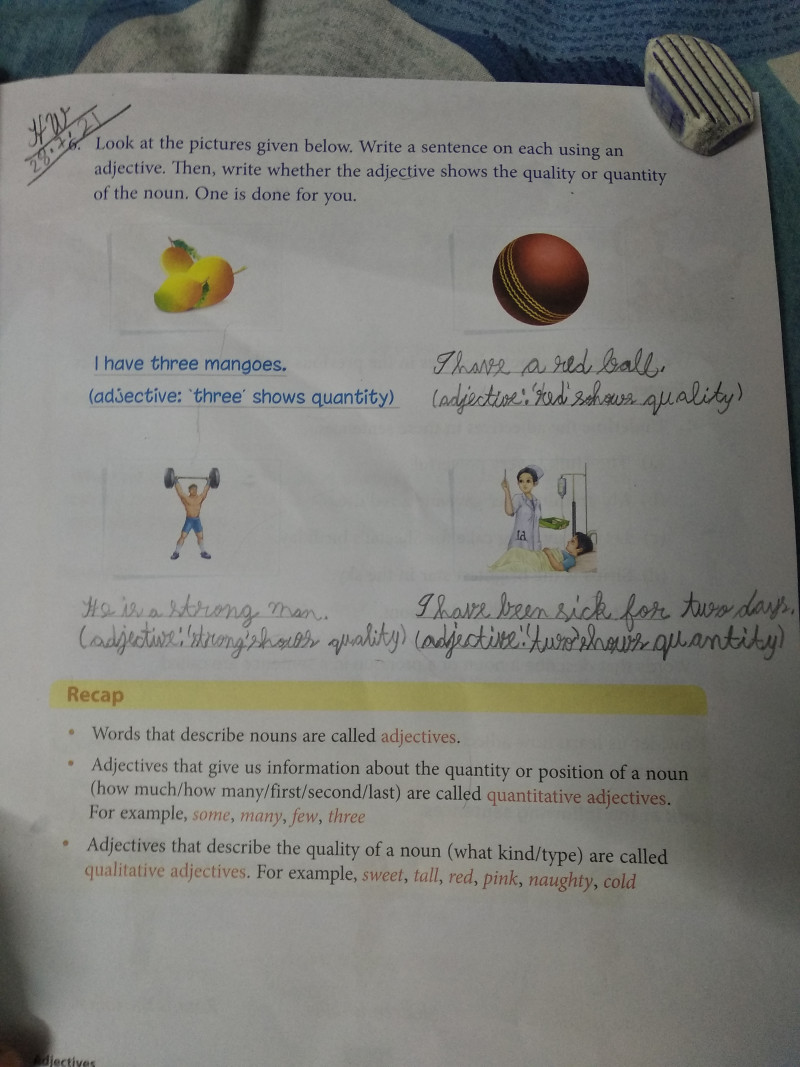 HW
28.7.21
6. Look at the pictures given below. Write a sentence on each using an
adjective. Then, write whether the adjective shows the quality or quantity
of the noun. One is done for you.
I have three mangoes.
(adjective: 'three' shows quantity)
I have a red ball.
(adjective: 'red' shows quality)
He is a strong man.
(adjective: 'strong' shows quality)
I have been sick for two days.
(adjective: 'two' shows quantity)
Recap
• Words that describe nouns are called adjectives.
• Adjectives that give us information about the quantity or position of a noun
(how much/how many/first/second/last) are called quantitative adjectives.
For example, some, many, few, three
• Adjectives that describe the quality of a noun (what kind/type) are called
qualitative adjectives. For example, sweet, tall, red, pink, naughty, cold
Adjectives